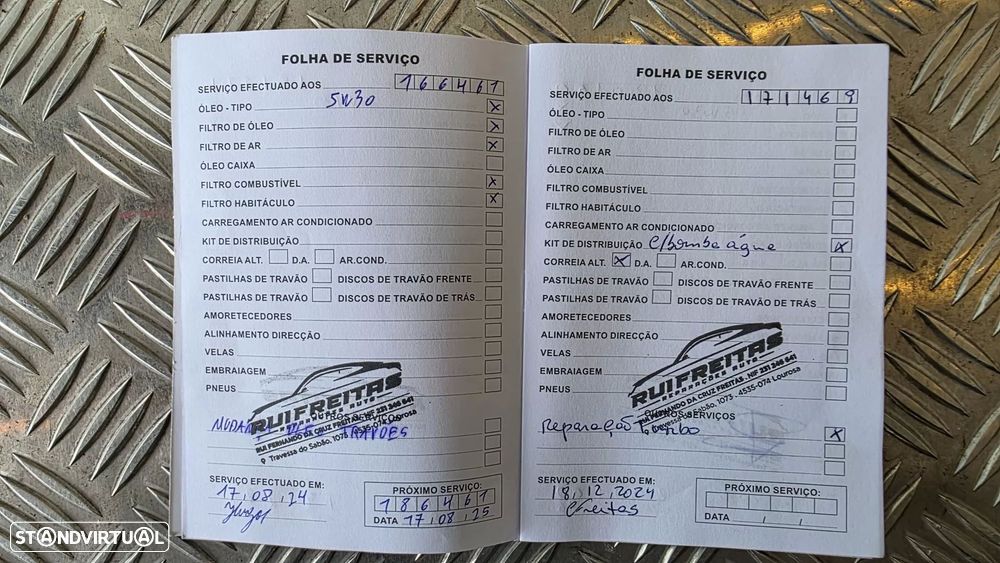 FOLHA DE SERVIÇO
SERVIÇO EFECTUADO AOS 166461
ÓLEO - TIPO 5W30 X
FILTRO DE ÓLEO X
FILTRO DE AR X
ÓLEO CAIXA
FILTRO COMBUSTÍVEL X
FILTRO HABITÁCULO X
CARREGAMENTO AR CONDICIONADO
KIT DE DISTRIBUIÇÃO
CORREIA ALT. D.A. AR.COND.
PASTILHAS DE TRAVÃO DISCOS DE TRAVÃO FRENTE
PASTILHAS DE TRAVÃO DISCOS DE TRAVÃO DE TRÁS
AMORETECEDORES
ALINHAMENTO DIRECÇÃO
VELAS
EMBRAIAGEM
PNEUS
RUIFREITAS
REPARAÇÕES AUTO
RUI FERNANDO DA CRUZ FREITAS . NIF 231 246 641
Travessa do Sabão, 1073 - 4535-074 Lourosa
OUTROS SERVIÇOS
TRAVOES
SERVIÇO EFECTUADO EM:
17,08,24
PRÓXIMO SERVIÇO:
186461
DATA 17,08,25
FOLHA DE SERVIÇO
SERVIÇO EFECTUADO AOS 171469
ÓLEO - TIPO
FILTRO DE ÓLEO
FILTRO DE AR
ÓLEO CAIXA
FILTRO COMBUSTÍVEL
FILTRO HABITÁCULO
CARREGAMENTO AR CONDICIONADO
KIT DE DISTRIBUIÇÃO c/bomba água X
CORREIA ALT. X D.A. AR.COND.
PASTILHAS DE TRAVÃO DISCOS DE TRAVÃO FRENTE
PASTILHAS DE TRAVÃO DISCOS DE TRAVÃO DE TRÁS
AMORETECEDORES
ALINHAMENTO DIRECÇÃO
VELAS
EMBRAIAGEM
PNEUS
RUIFREITAS
REPARAÇÕES AUTO
RUI FERNANDO DA CRUZ FREITAS . NIF 231 246 641
Travessa do Sabão, 1073 - 4535-074 Lourosa
OUTROS SERVIÇOS
Reparação X
SERVIÇO EFECTUADO EM:
18,12,2024
CFreitas
PRÓXIMO SERVIÇO:
DATA / /
STANDVIRTUAL